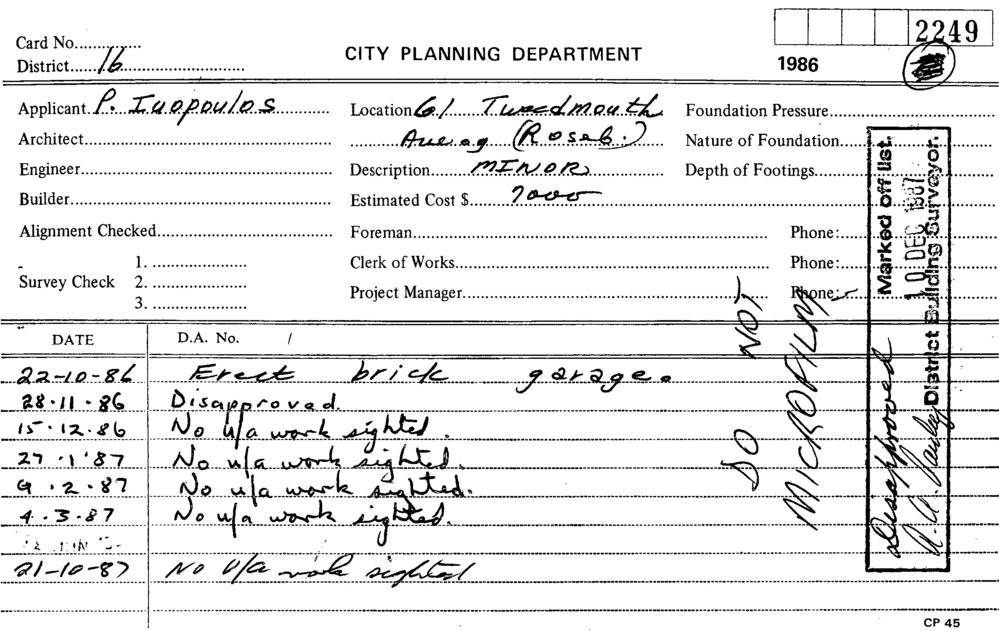 2249
Card No.
District 16
CITY PLANNING DEPARTMENT
1986
Applicant P. Iuopoulos
Location 61 Tweedmouth
Foundation Pressure
Architect
(Roseb.)
Nature of Foundation
Engineer
Description MINOR
Depth of Footings
Builder
Estimated Cost $ 7000
Alignment Checked
Foreman
Phone:
Survey Check 1.
2.
3.
Clerk of Works
Phone:
Project Manager
Phone:
DATE D.A. No. /
22-10-86 Erect brick garage.
28.11.86 Disapproved.
15.12.86 No u/a work sighted.
27.1'87 No u/a work sighted.
9.2.87 No u/a work sighted.
4.3.87 No u/a work sighted.
21-10-87 No U/a work sighted
DO NOT
MICROFILM
Marked off list.
10 DEC 1987
District Building Surveyor.
Disapproved
CP 45